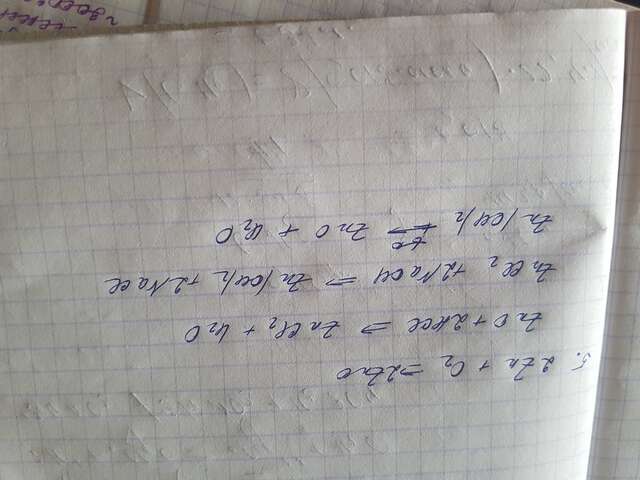 5. 2Zn + O₂ ⇒ 2ZnO
ZnO + 2HCl ⇒ ZnCl₂ + H₂O
ZnCl₂ + 2NaOH ⇒ Zn(OH)₂ + 2NaCl
Zn(OH)₂ ⇒ ZnO + H₂O